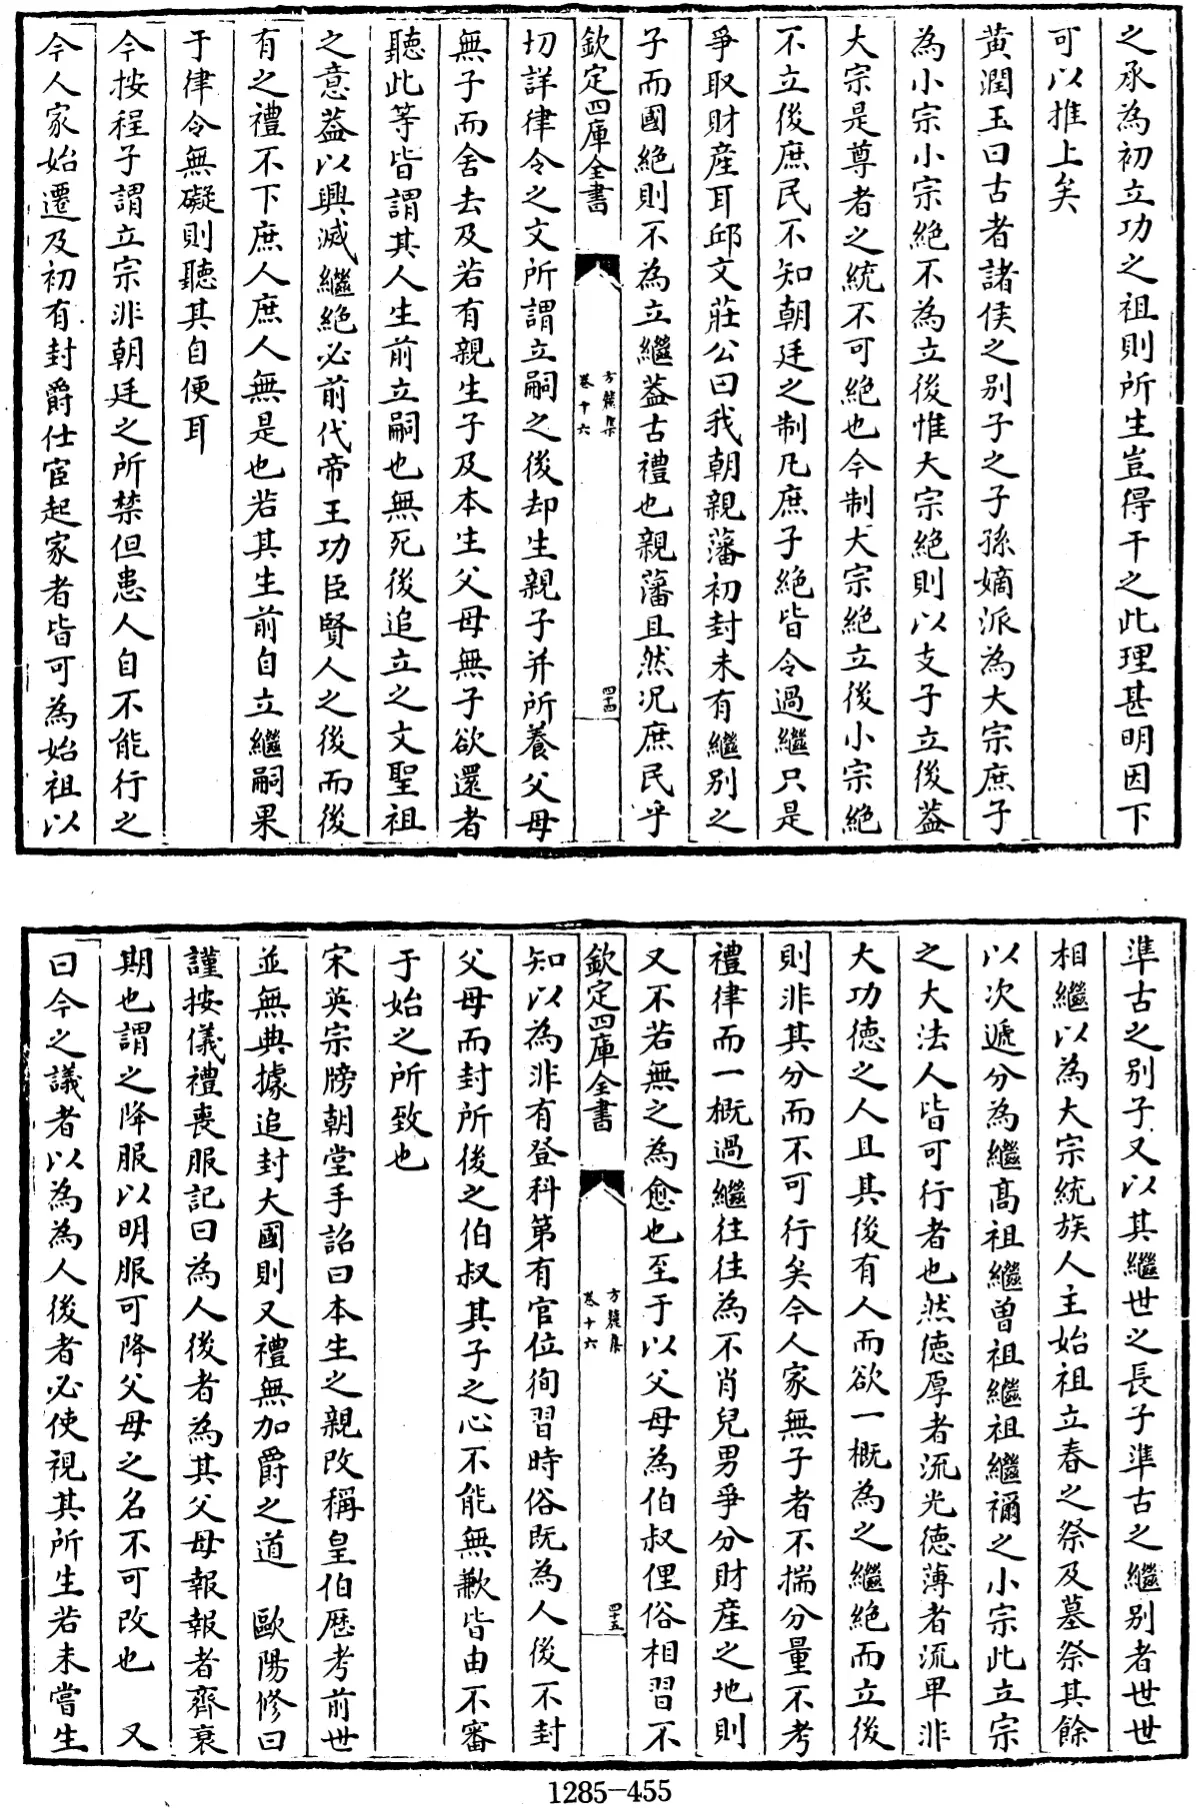 之承為初立功之祖則所生豈得干之此理甚明因下
可以推上矣
黄潤玉曰古者諸侯之别子之子孫嫡派為大宗庶子
為小宗小宗絶不為立後惟大宗絶則以支子立後葢
大宗是尊者之統不可絶也今制大宗絶立後小宗絶
不立後庶民不知朝廷之制凡庶子絶皆令過繼只是
爭取財産耳邱文莊公曰我朝親藩初封未有繼别之
子而國絶則不為立繼葢古禮也親藩且然况庶民乎
欽定四庫全書
方麓集
卷十六
四十四
切詳律令之文所謂立嗣之後却生親子并所養父母
無子而舍去及若有親生子及本生父母無子欲還者
聽此等皆謂其人生前立嗣也無死後追立之文聖祖
之意葢以興滅繼絶必前代帝王功臣賢人之後而後
有之禮不下庶人庶人無是也若其生前自立繼嗣果
于律令無礙則聽其自便耳
今按程子謂立宗非朝廷之所禁但患人自不能行之
今人家始遷及初有封爵仕宦起家者皆可為始祖以
準古之别子又以其繼世之長子準古之繼别者世世
相繼以為大宗統族人主始祖立春之祭及墓祭其餘
以次遞分為繼髙祖繼曽祖繼祖繼禰之小宗此立宗
之大法人皆可行者也然徳厚者流光徳薄者流卑非
大功徳之人且其後有人而欲一概為之繼絶而立後
則非其分而不可行矣今人家無子者不揣分量不考
禮律而一概過繼往往為不肖兒男爭分財産之地則
又不若無之為愈也至于以父母為伯叔俚俗相習不
欽定四庫全書
方麓集
卷十六
四十五
知以為非有登科第有官位徇習時俗既為人後不封
父母而封所後之伯叔其子之心不能無歉皆由不審
于始之所致也
宋英宗牓朝堂手詔曰本生之親改稱皇伯歴考前世
並無典據追封大國則又禮無加爵之道　歐陽修曰
謹按儀禮喪服記曰為人後者為其父母報報者齊衰
期也謂之降服以明服可降父母之名不可改也　又
曰今之議者以為為人後者必使視其所生若未嘗生
1285-455